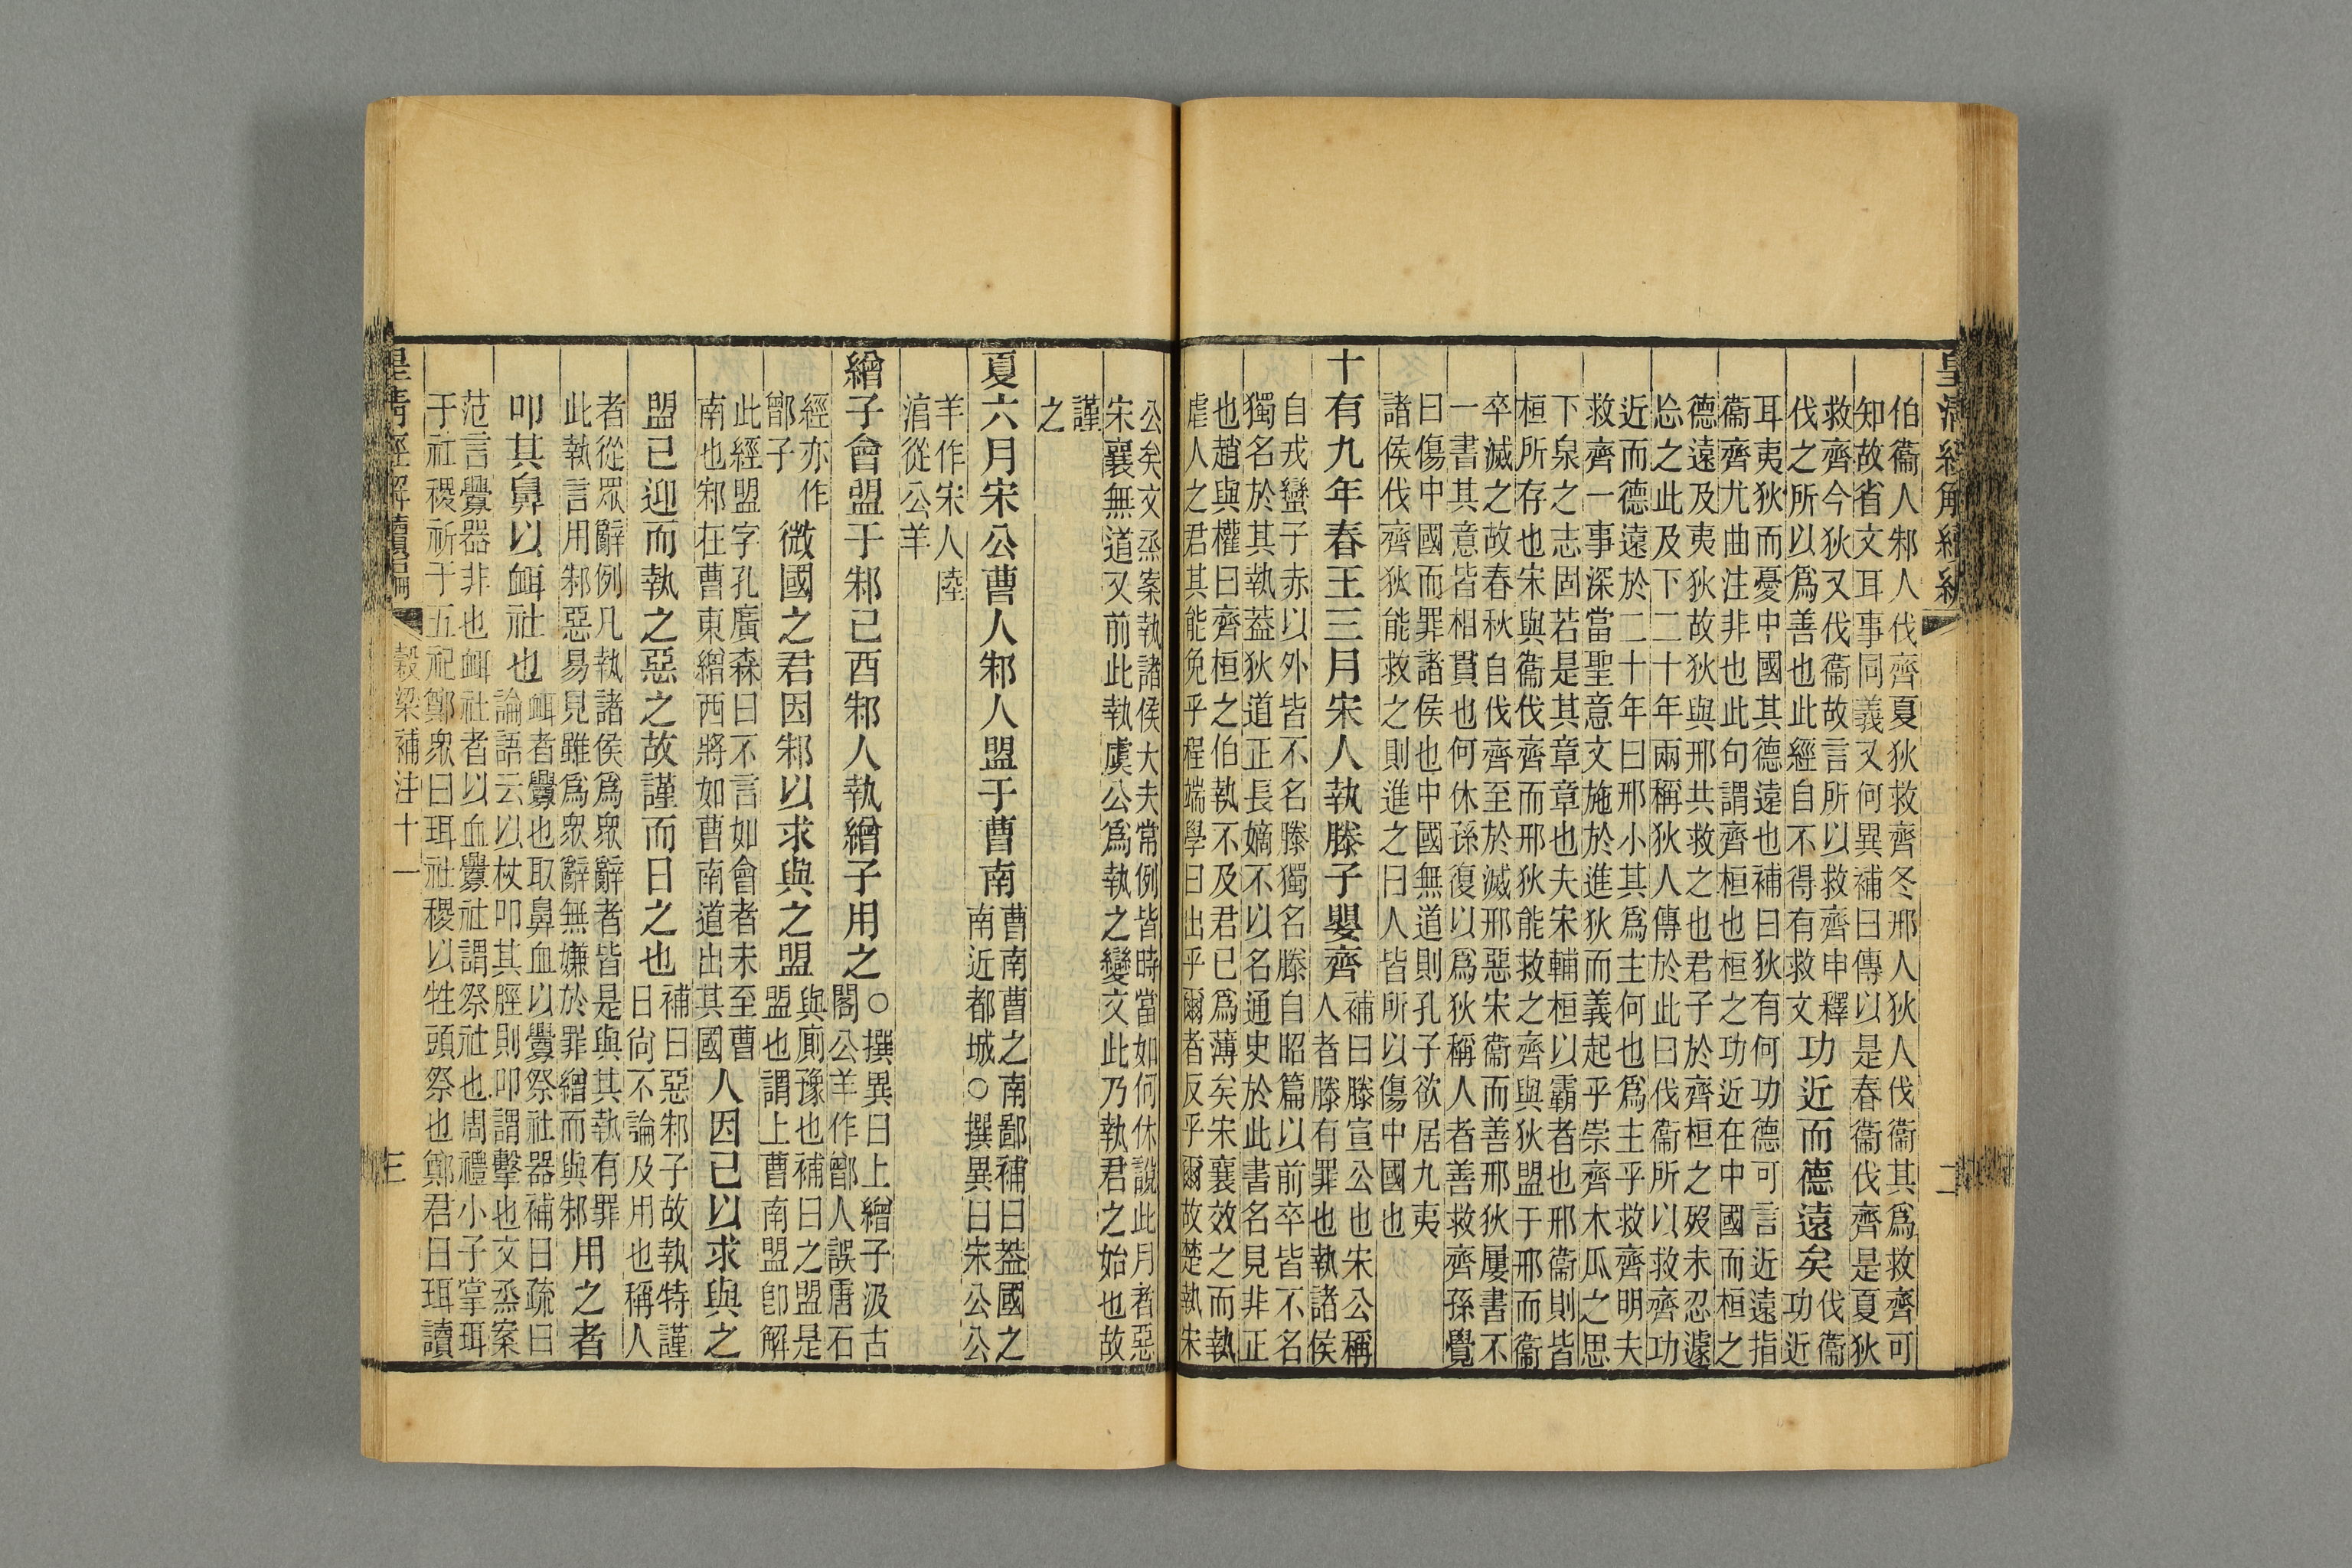 皇清經解續編
二
伯衞人邾人伐齊夏狄救齊冬邢人狄人伐衞其爲救齊可
知故省文耳事同義又何異補曰傳以是春衞伐齊是夏狄
救齊今狄又伐衞故言所以救齊申釋
伐之所以爲善也此經自不得有救文
功近而德遠矣
伐衞
功近
耳夷狄而憂中國其德遠也補曰狄有何功德可言近遠指
衞齊尤曲注非也此句謂齊桓也桓之功近在中國而桓之
德遠及夷狄故狄與邢共救之也君子於齊桓之歿未忍遽
忘之此及下二十年兩稱狄人傳於此曰伐衞所以救齊功
近而德遠於二十年曰邢小其爲主何也爲主乎救齊明夫
救齊一事深當聖意文施於進狄而義起乎崇齊木瓜之思
下泉之志固若是其章章也夫宋輔桓以霸者也邢衞則皆
桓所存也宋與衞伐齊而邢狄能救之齊與狄盟于邢而衞
卒滅之故春秋自伐齊至於滅邢惡宋衞而善邢狄屢書不
一書其意皆相貫也何休孫復以爲狄稱人者善救齊孫覺
曰傷中國而罪諸侯也中國無道則孔子欲居九夷
諸侯伐齊狄能救之則進之曰人皆所以傷中國也
十有九年春王三月宋人執滕子嬰齊
補曰滕宣公也宋公稱
人者滕有罪也執諸侯
自戎蠻子赤以外皆不名滕獨名滕自昭篇以前卒皆不名
獨名於其執蓋狄道正長嫡不以名通史於此書名見非正
也趙與權曰齊桓之伯執不及君已爲薄矣宋襄效之而執
虐人之君其能免乎程端學曰出乎爾者反乎爾故楚執宋
公矣文烝案執諸侯大夫常例皆時當如何休說此月者惡
宋襄無道又前此執虞公爲執之變文此乃執君之始也故
謹
之
夏六月宋公曹人邾人盟于曹南
曹南曹之南鄙補曰蓋國之
南近都城○撰異曰宋公公
羊作宋人陸
淳從公羊
繒子會盟于邾己酉邾人執繒子用之
○撰異曰上繒子汲古
閣公羊作鄫人誤唐石
經亦作
鄫子
微國之君因邾以求與之盟
與厠豫也補曰之盟是
盟也謂上曹南盟卽解
此經盟字孔廣森曰不言如會者未至曹
南也邾在曹東繒西將如曹南道出其國
人因己以求與之
盟已迎而執之惡之故謹而日之也
補曰惡邾子故執特謹
日尙不論及用也稱人
者從眾辭例凡執諸侯爲眾辭者皆是與其執有罪
此執言用邾惡易見雖爲眾辭無嫌於罪繒而與邾
用之者
叩其鼻以衈社也
衈者釁也取鼻血以釁祭社器補曰疏曰
論語云以杖叩其脛則叩謂擊也文烝案
范言釁器非也衈社者以血釁社謂祭社也周禮小子掌珥
于社稷祈于五祀鄭眾曰珥社稷以牲頭祭也鄭君曰珥讀
皇清經解續編
穀梁補注十一
三